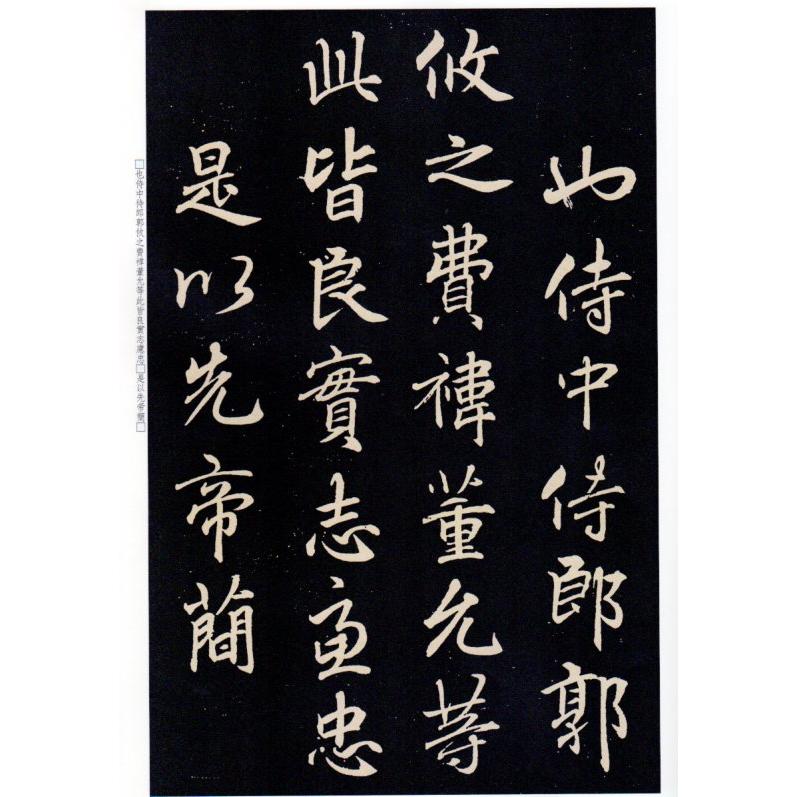 也侍中侍郎郭
攸之費禕董允等
此皆良實志慮忠
是以先帝簡
□也侍中侍郎郭攸之費禕董允等此皆良實志慮忠□是以先帝簡□